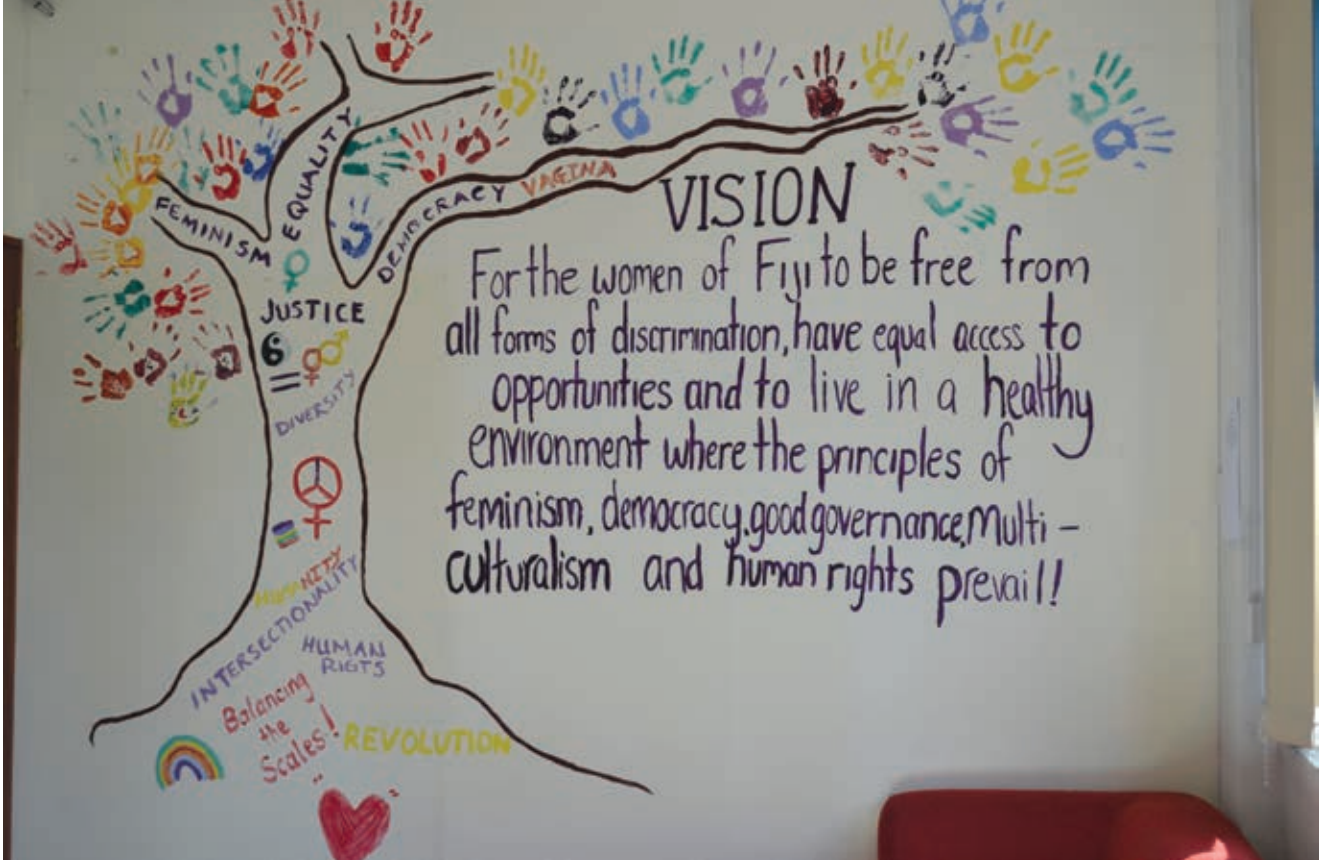 FEMINISM
EQUALITY
DEMOCRACY VAGINA
JUSTICE
DIVERSITY
HUMANITY
INTERSECTIONALITY
HUMAN
RIGTS
Balancing
the
Scales!
REVOLUTION
VISION
For the women of Fiji to be free from
all forms of discrimination, have equal access to
opportunities and to live in a healthy
environment where the principles of
feminism, democracy, good governance, Multi -
culturalism and human rights prevail!